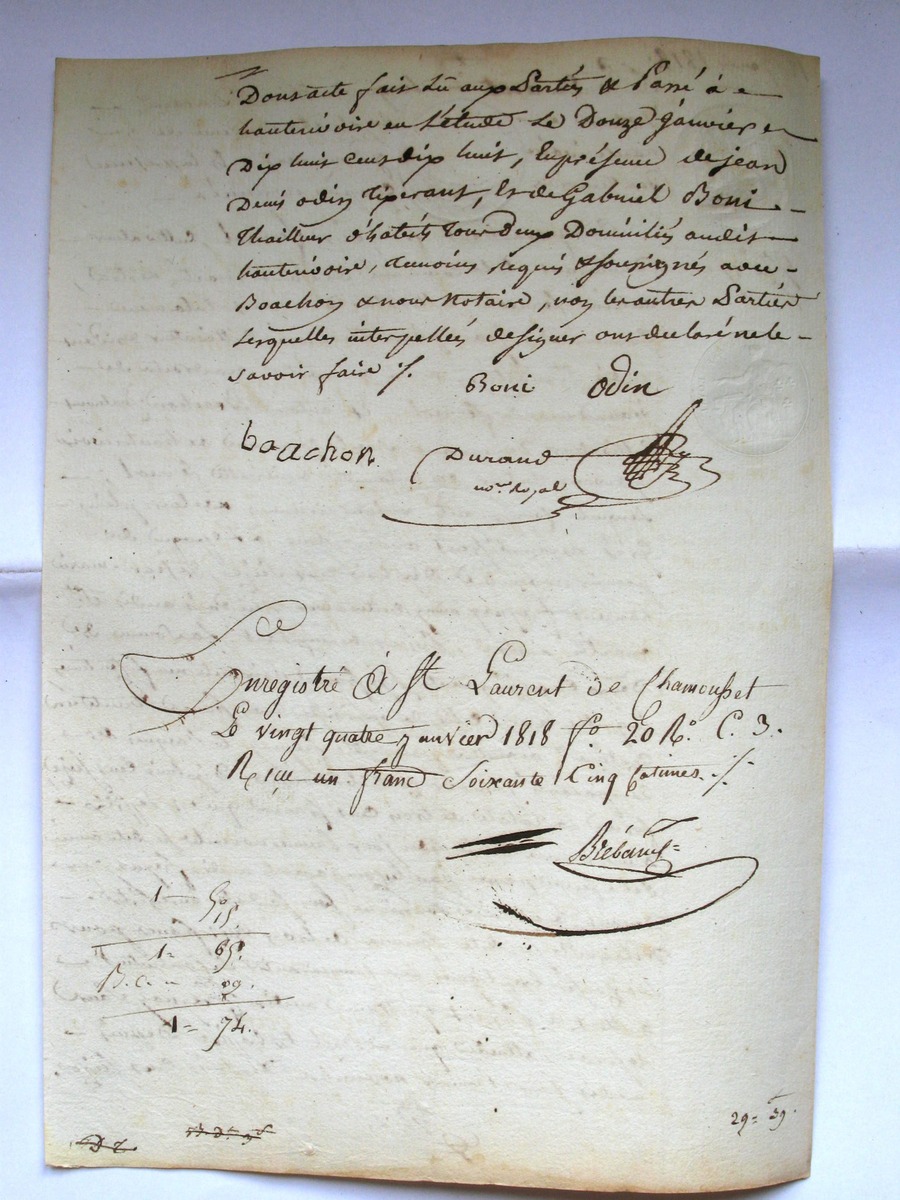 Dont acte fait Lu aux Parties & Passé à
hauterivoire en L'étude Le Douze Janvier
Dix huit cent dix huit, En présence de jean
Denis odin Tixerant, Et de Gabriel Boni
Thailleur d'habits Tous deux Domiciliés audit
hauterivoire, temoins requis & soussignés avec
Boachon & nous Notaire, non les autres Parties
Lesquelles interpellées de signer ont declaré ne le
savoir faire ./.
Boni odin
boachon Durand
no.re Royal
Enregistré à St Laurent de Chamousset
Le vingt quatre janvier 1818 fo 20 Ro. C. 3.
Reçu un franc Soixante Cinq Centimes ./.
1 - 50
15.
1 = 65.
09.
1 = 74.
29 = 39.